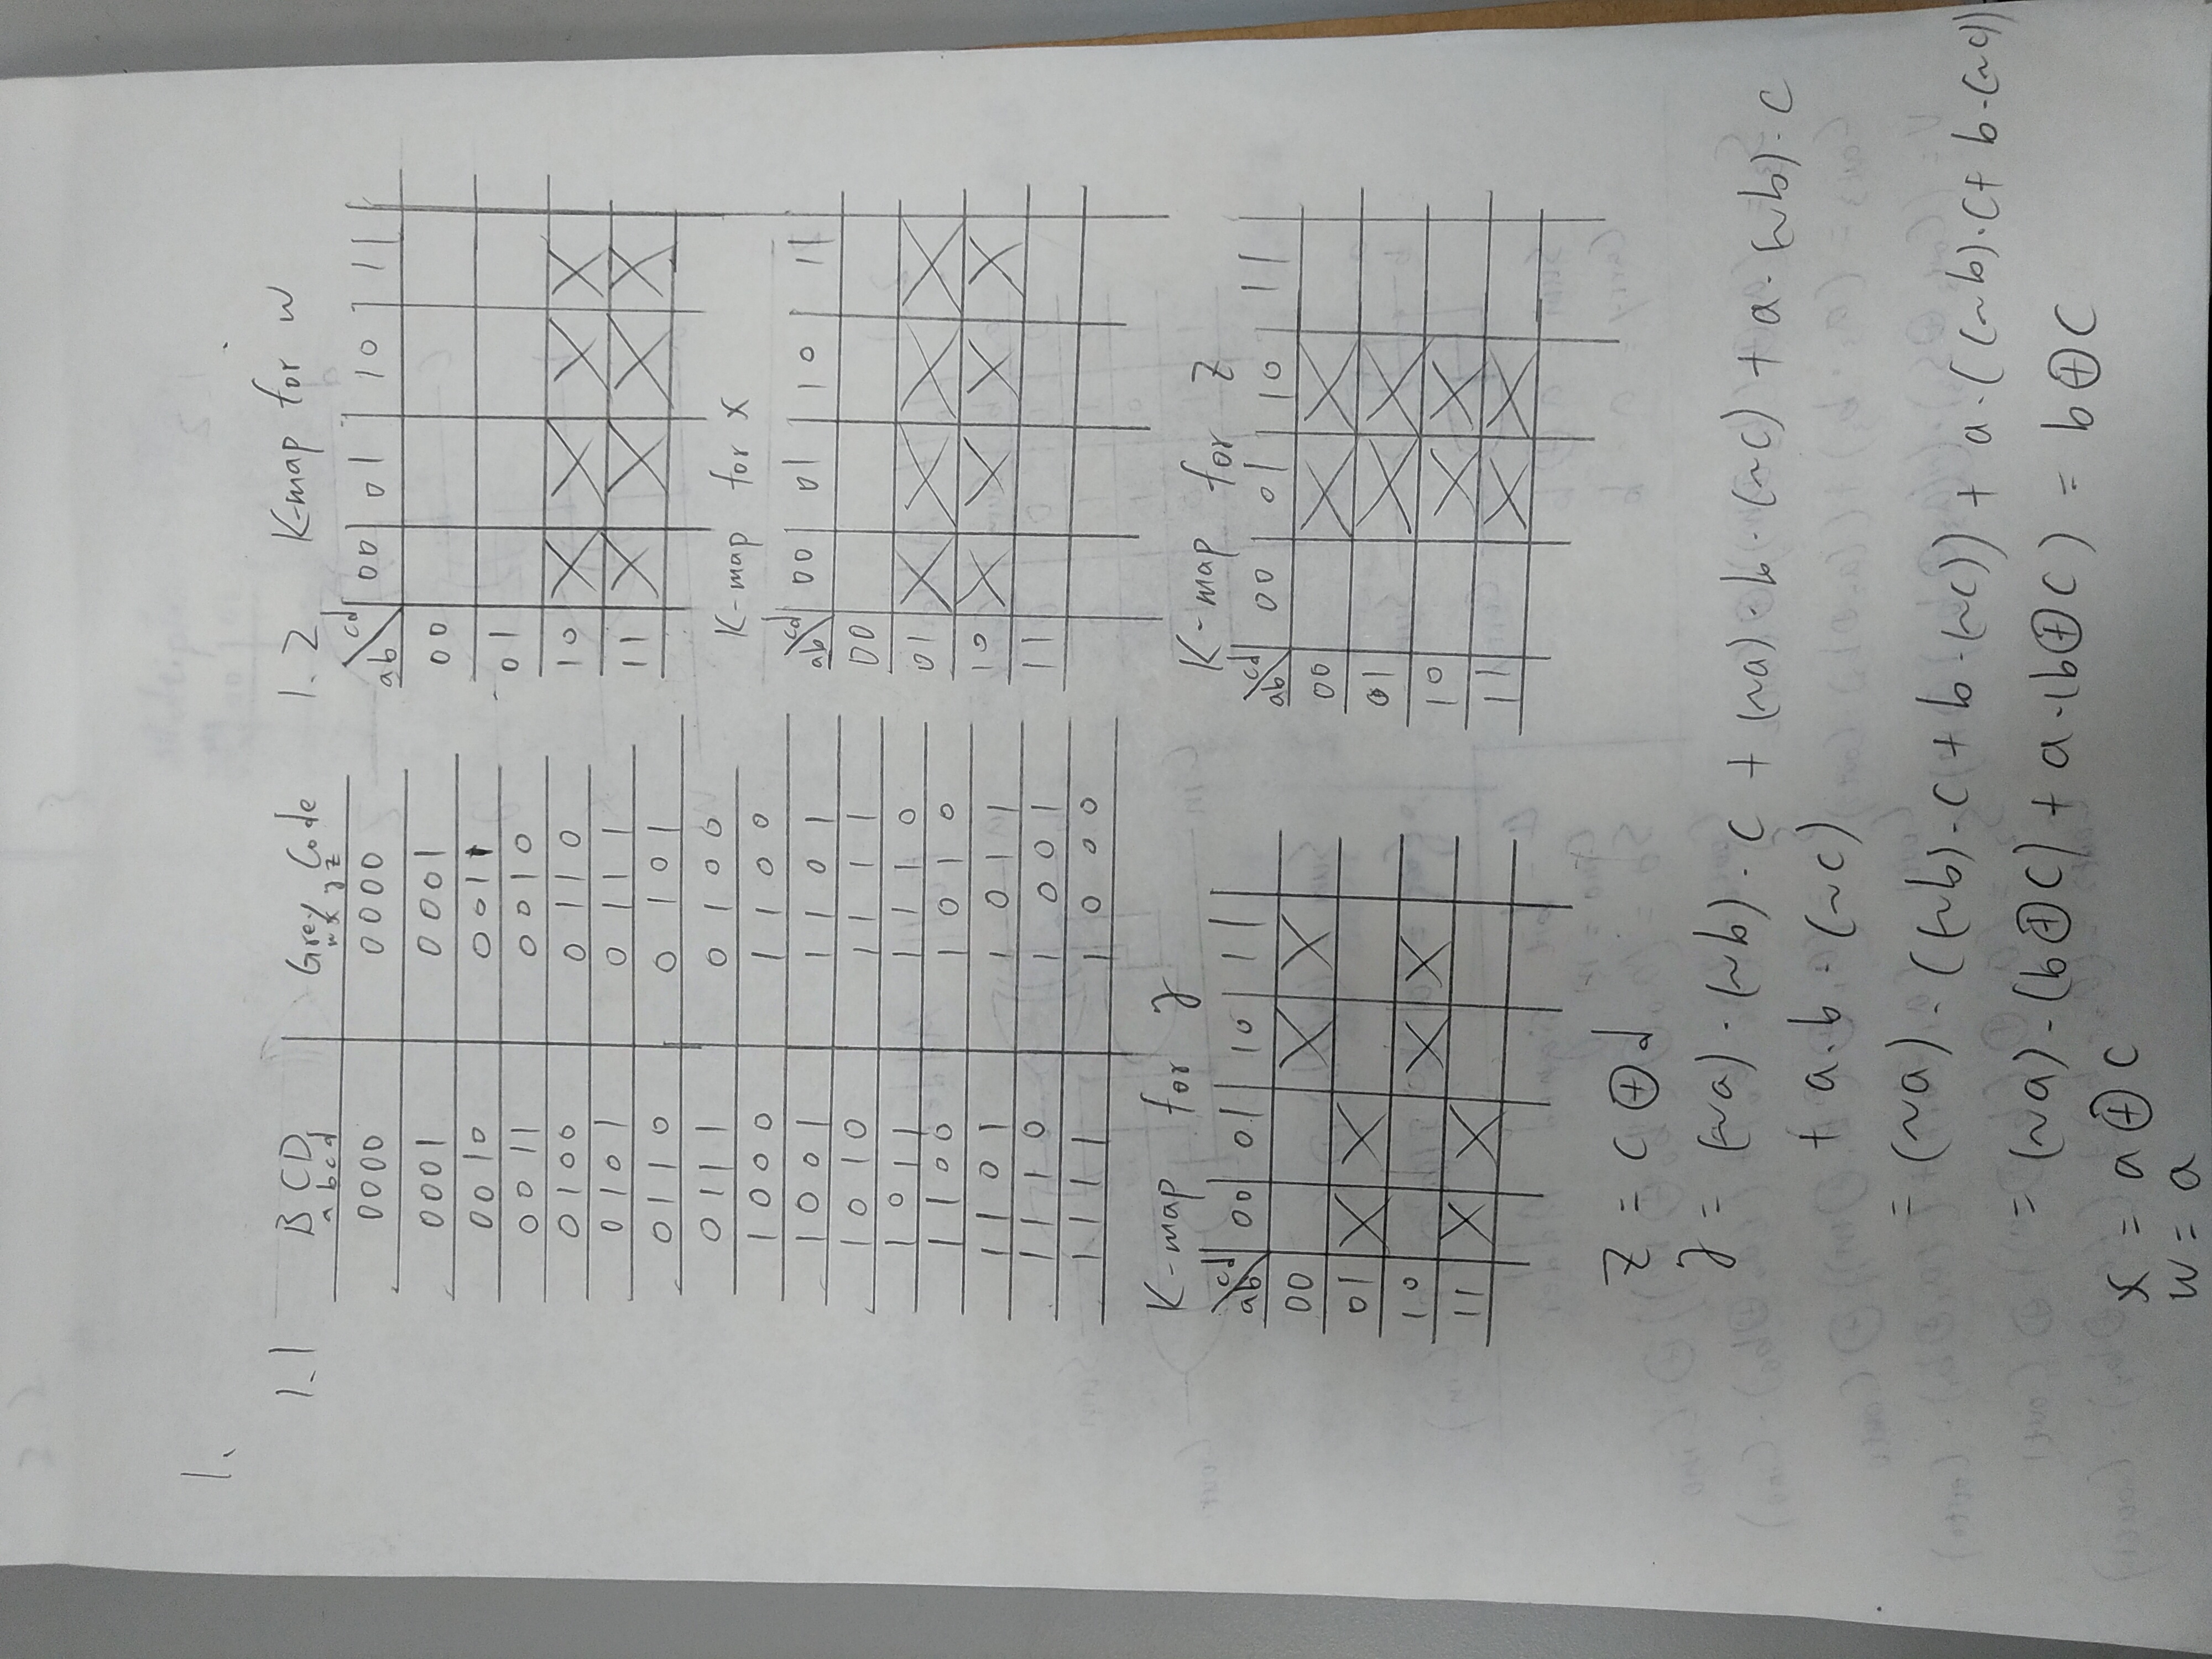 1.
1.1
BCD | Grey Code
a b c d | w x y z
0000 | 0000
0001 | 0001
0010 | 0011
0011 | 0010
0100 | 0110
0101 | 0111
0110 | 0101
0111 | 0100
1000 | 1100
1001 | 1101
1010 | 1111
1011 | 1110
1100 | 1010
1101 | 1011
1110 | 1001
1111 | 1000
1.2 K-map for w
ab\cd | 00 | 01 | 10 | 11
00 | | | |
01 | | | |
10 | X | X | X | X
11 | X | X | X | X
K-map for x
ab\cd | 00 | 01 | 10 | 11
00 | | | |
01 | X | X | X | X
10 | X | X | X | X
11 | | | |
K-map for y
ab\cd | 00 | 01 | 10 | 11
00 | | | X | X
01 | X | X | |
10 | | | X | X
11 | X | X | |
K-map for z
ab\cd | 00 | 01 | 10 | 11
00 | | X | X |
01 | | X | X |
10 | | X | X |
11 | | X | X |
z = c ⊕ d
y = (~a) · (~b) · c + (~a) · b · (~c) + a · (~b) · c
+ a · b · (~c)
= (~a) · ((~b) · c + b · (~c)) + a · ((~b) · c + b · (~c))
= (~a) · (b ⊕ c) + a · (b ⊕ c) = b ⊕ c
x = a ⊕ c
w = a